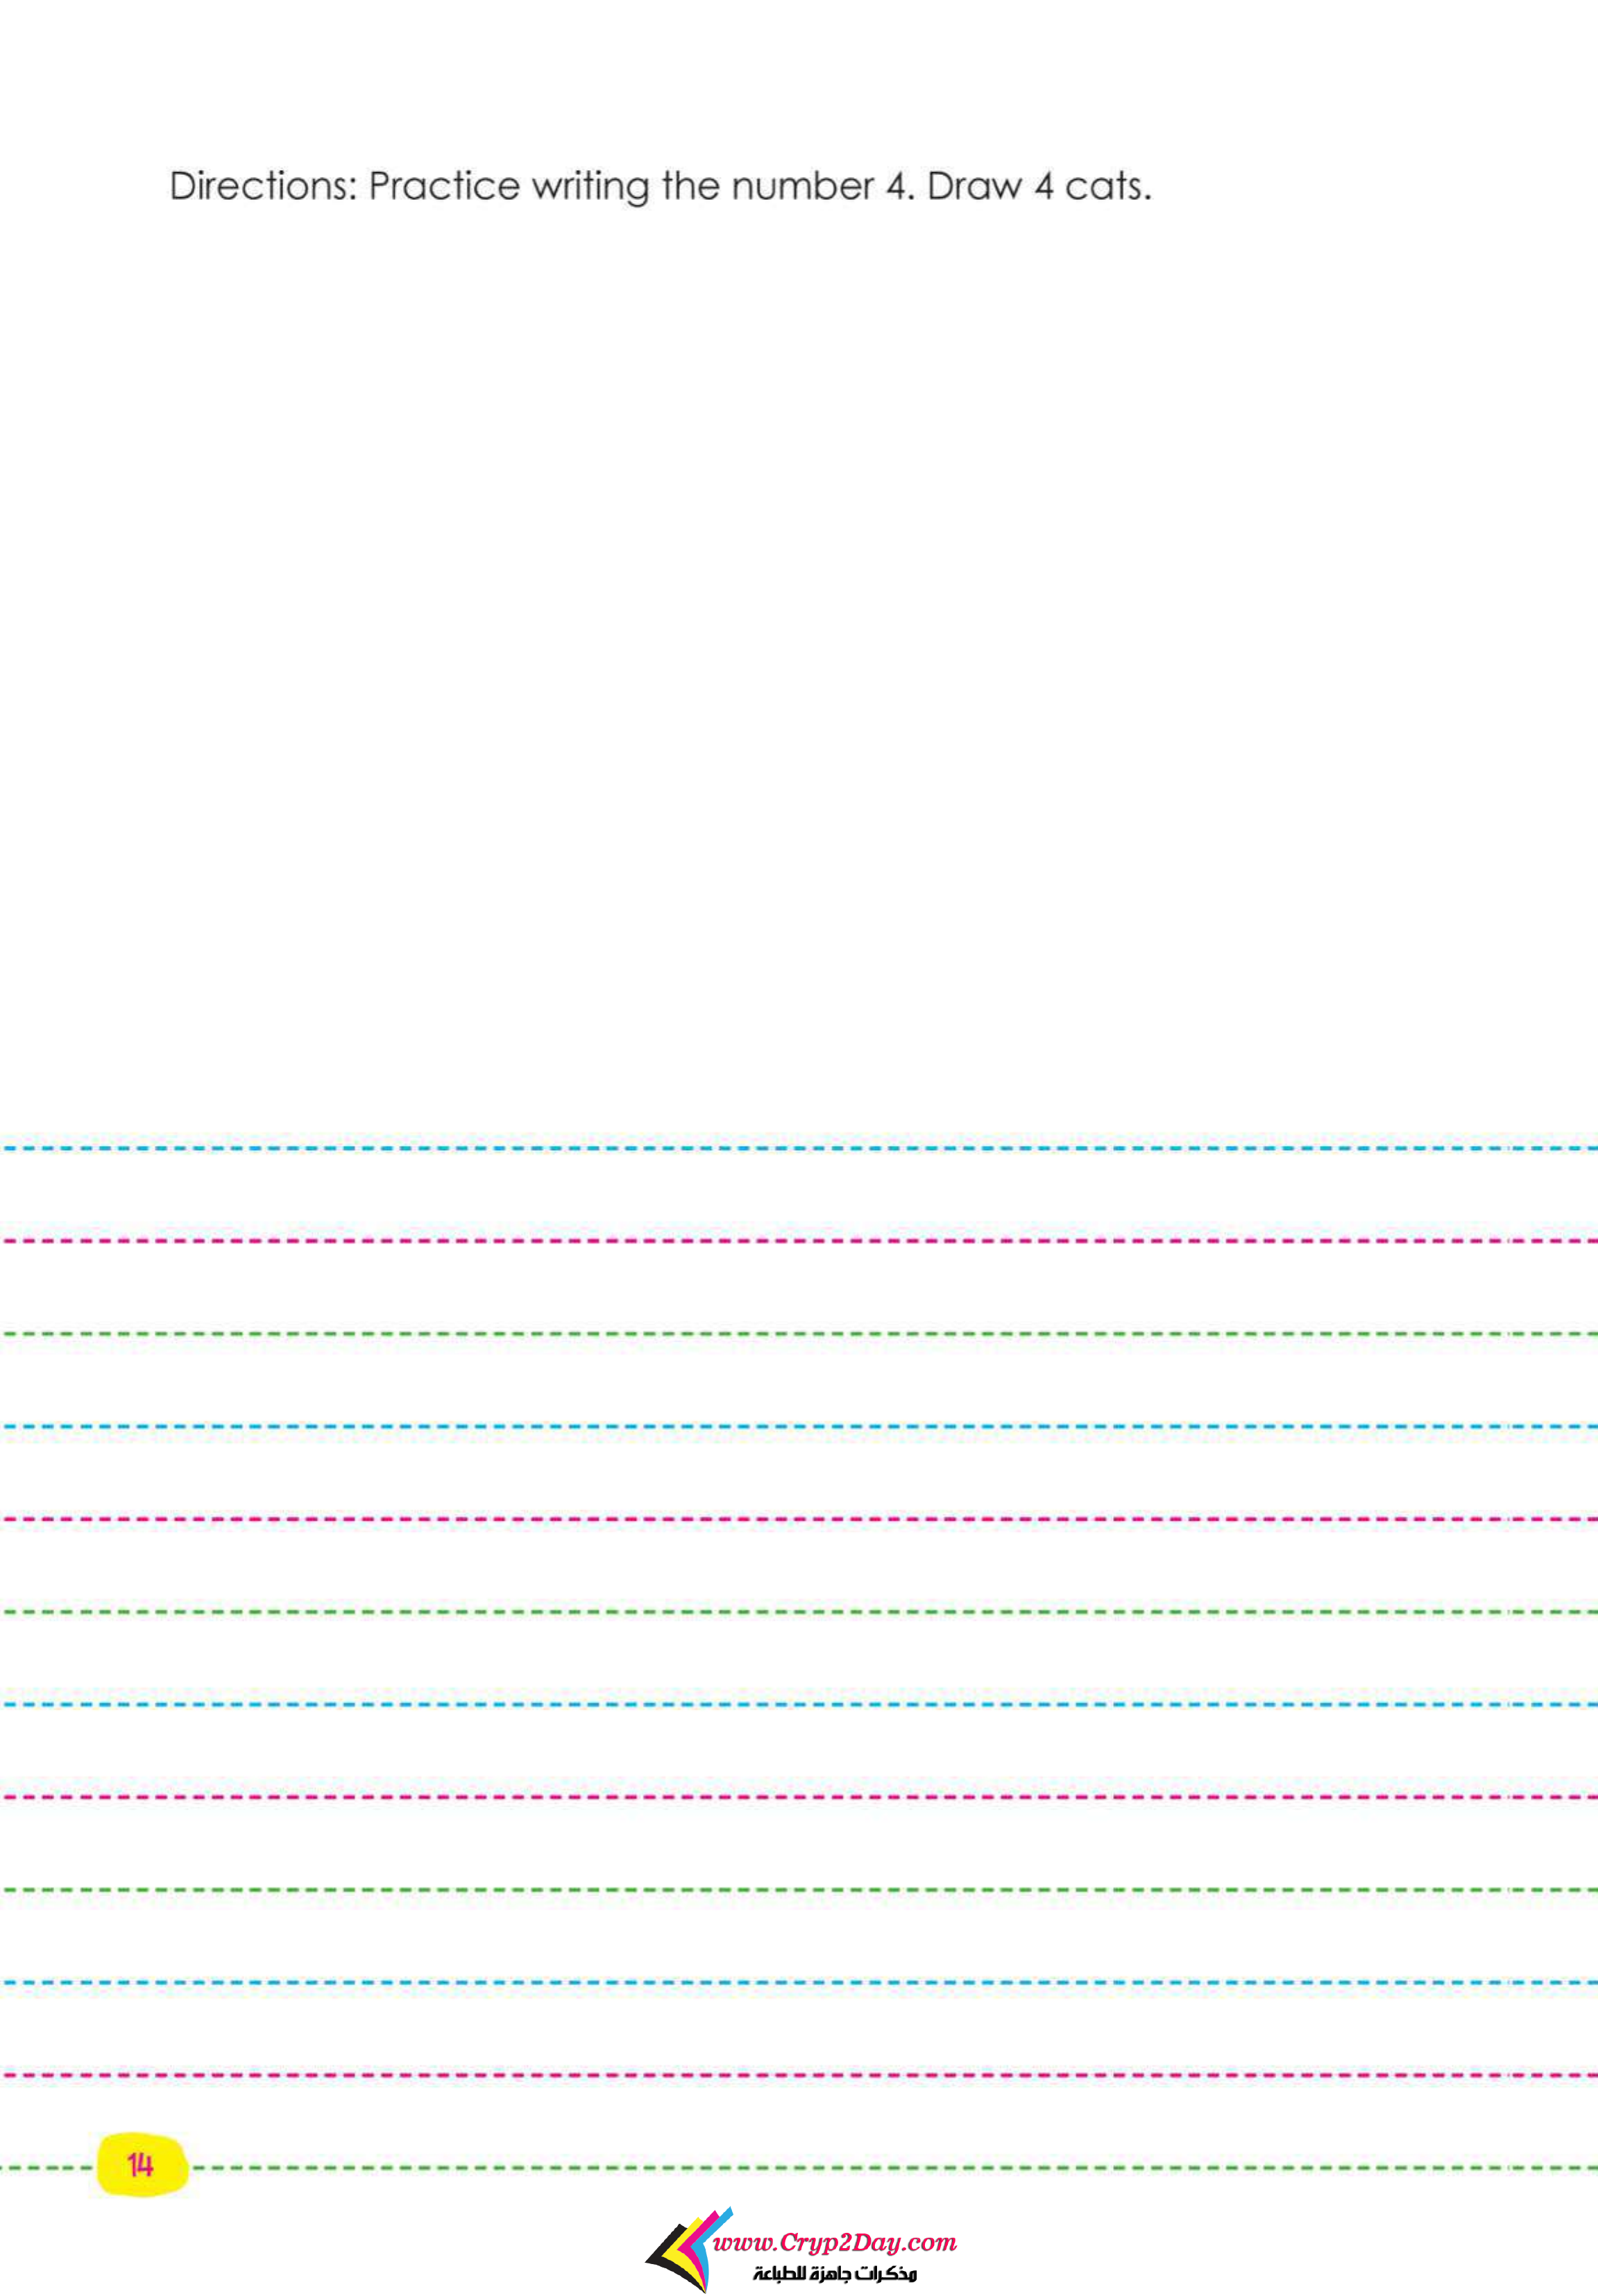 Directions: Practice writing the number 4. Draw 4 cats.
14
www.Cryp2Day.com
مذكرات جاهزة للطباعة